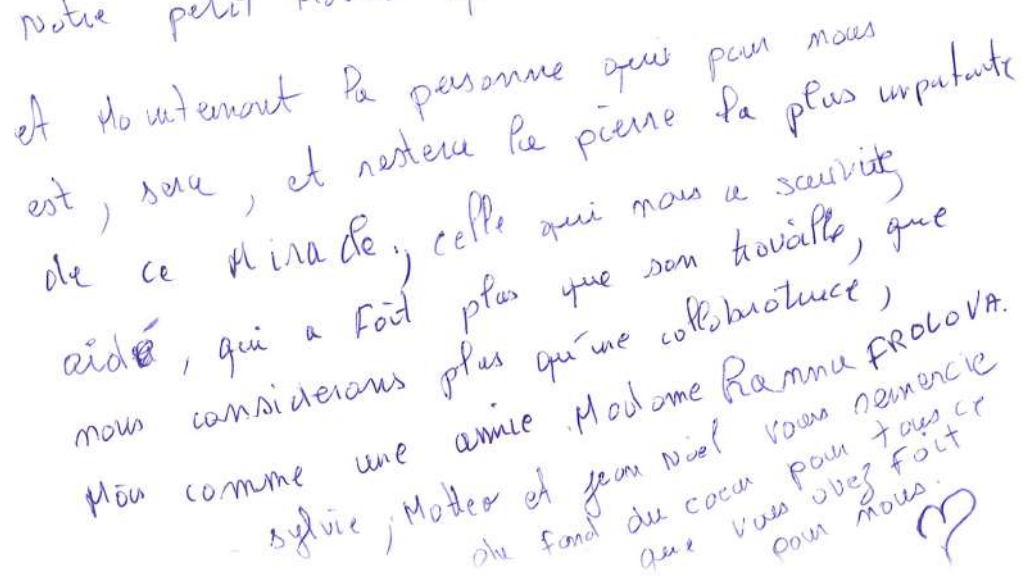 Notre petit
et Maintenant la personne qui pour nous
est, sera, et restera la pierre la plus importante
de ce Miracle, celle qui nous a
aidé, qui a Fait plus que son travaille, que
nous considerons plus qu'une collaboratrice,
Mais comme une amie. Madame Ranna FROLOVA.
sylvie, Matteo et jean Noël vous remercie
du fond du coeur pour tous ce
que vous avez Fait
pour nous.